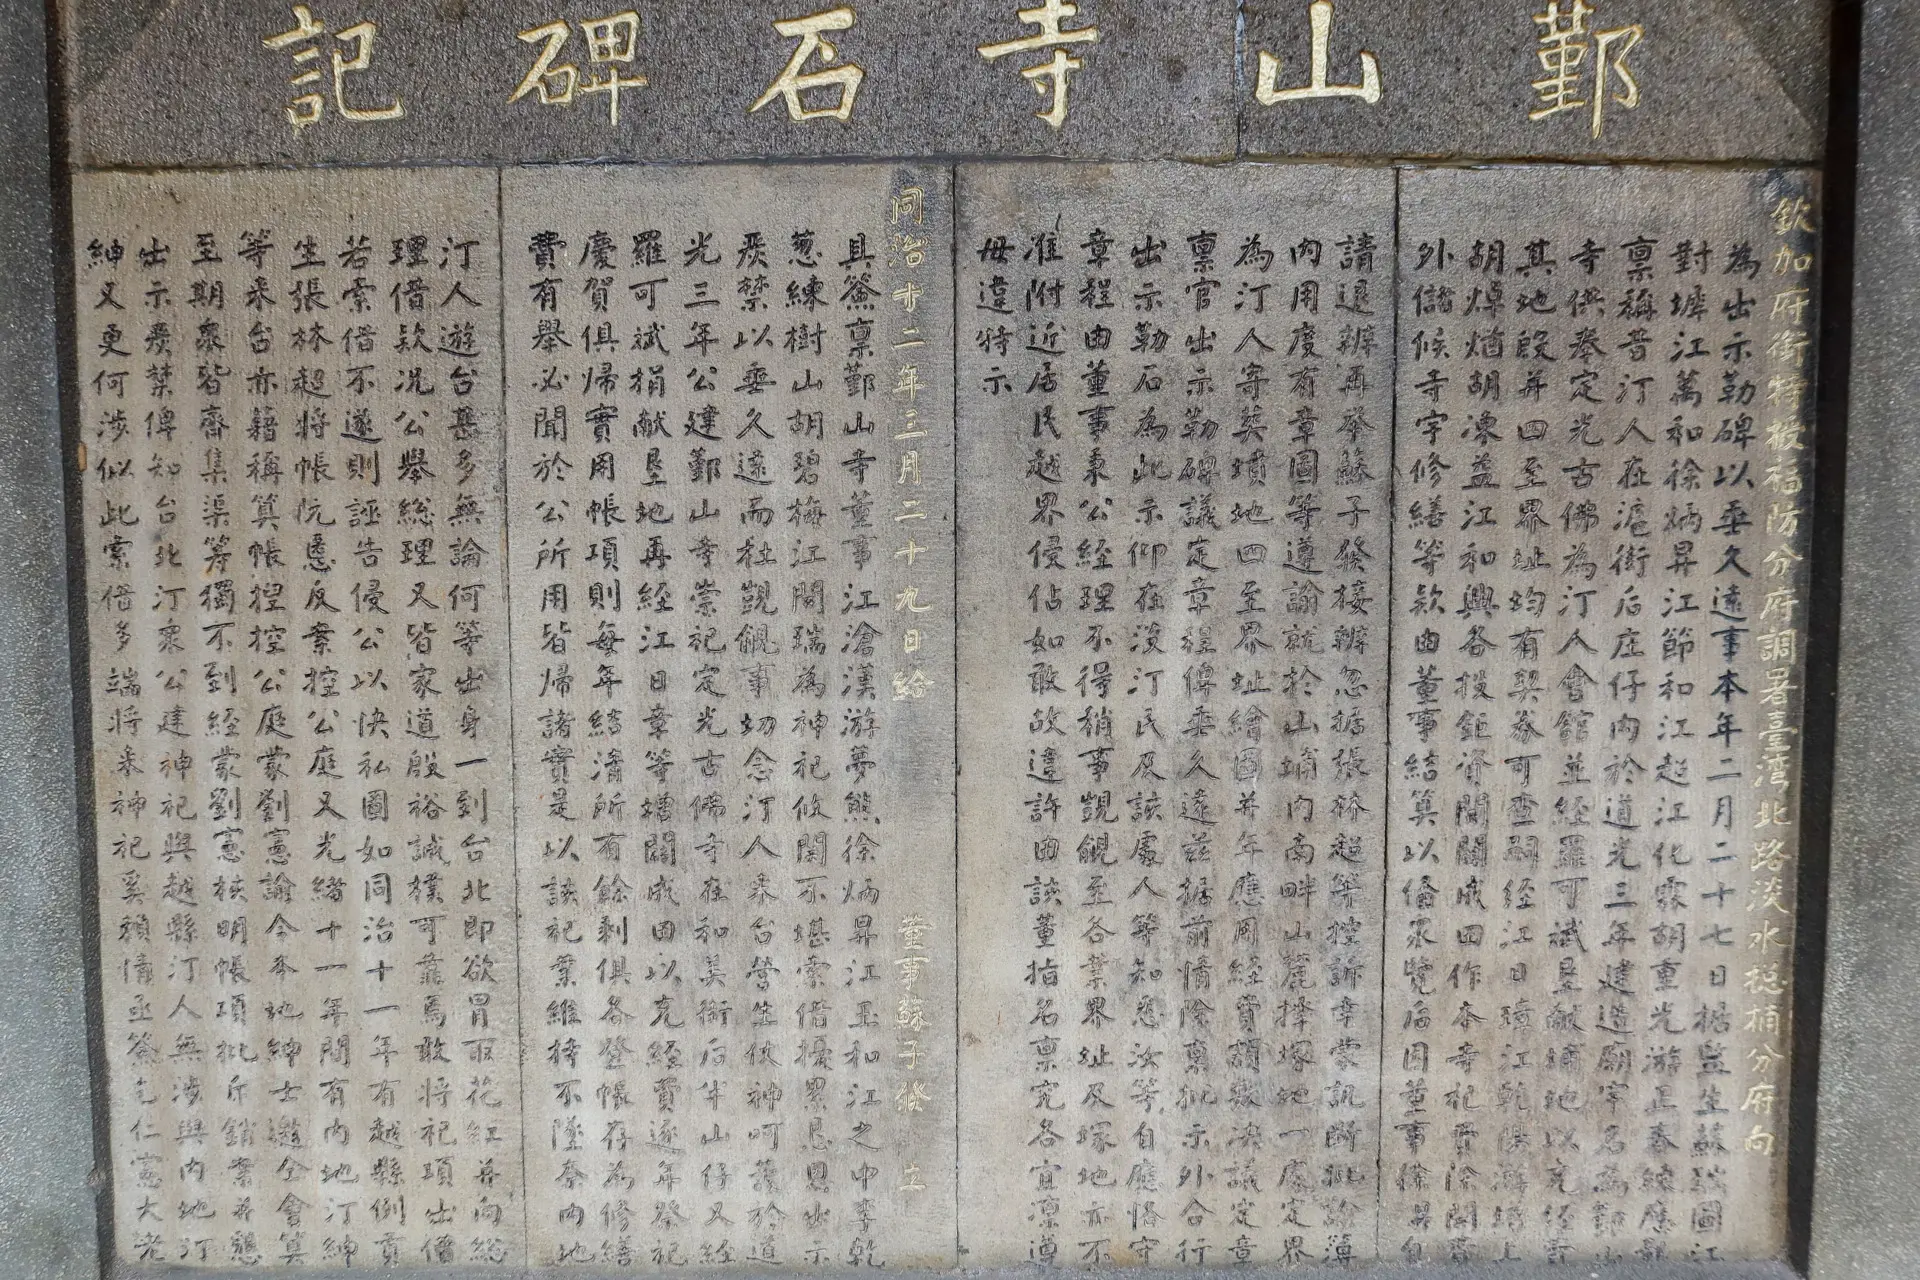 鄞山寺石碑記
欽加府銜特授福防分府調署臺灣北路淡水捴捕分府向
為出示勒碑以垂久遠事本年二月二十七日据監生蘇瑞圖江
對墀江萬和徐炳昇江節和江超江化霖胡重光游正春練應
稟稱昔汀人在滬街后庄仔內於道光三年建造廟宇名為鄞山
寺供奉定光古佛為汀人會館並経羅可斌墾献埔地以充経
其地段并四至界址均有契券可查嗣経江日璋江乾
胡焯猷胡凍益江和興各投鉅資開闢成田作本寺祀費除開
外儲候寺宇修繕等欵由董事結算以偹衆覽后因董事徐昇
請退辦再举蘇子發接辦忽据張林超等控訴幸蒙訊斷批諭簿
內用度有章圖等遵諭就於山埔內南畔山麓擇塚地一處定界
為汀人寄葬墳地四至界址繪圖并年應用経費額數决議定章
稟官出示勒碑議定章程俾垂久遠茲据前情除稟批示外合行
出示勒石為此示仰在淡汀民及該處人等知悉汝等自應恪守
章程由董事秉公経理不得稍事覬覦至各業界址及塚地亦不
准附近居民越界侵佔如敢故違許由該董指名稟究各宜凛遵
毋違特示
同治十二年三月二十九日給 董事蘇子發 立
具僉稟鄞山寺董事江滄漢游夢熊徐炳昇江玉和江之中李乾
葱練樹山胡碧梅江開瑞為神祀攸関不堪索借擾累恳恩出示
嚴禁以垂久遠而杜覬覦事切念汀人来台營生伏神呵護於道
光三年公建鄞山寺崇祀定光古佛寺在和美街后牛山仔又経
羅可斌捐献垦地再経江日章等增闢成田以充経費逐年祭祀
慶賀俱帰實用帳項則每年結清所有餘剩俱各登帳存為修繕
費有舉必聞於公所用皆帰諸實是以該祀業維持不墜奈內地
汀人遊台甚多無論何等出身一到台北即欲冒取花紅并向総
理借欵况公舉総理又皆家道殷裕誠樸可靠焉敢將祀項出借
若索借不遂則誣告侵公以快私圖如同治十一年有越縣例貢
生張林超將帳阬慝反案控公庭又光緒十一年間有內地汀紳
等来台亦籍稱算帳捏控公庭蒙劉憲諭令本地紳士邀仝會算
至期衆皆齊集渠等獨不到経蒙劉憲核明帳項批斥銷案并懇
出示嚴禁俾知台北汀衆公建神祀與越縣汀人無涉與內地汀
紳又更何涉似此索借多端將来神祀奚賴情亟僉乞仁憲大老